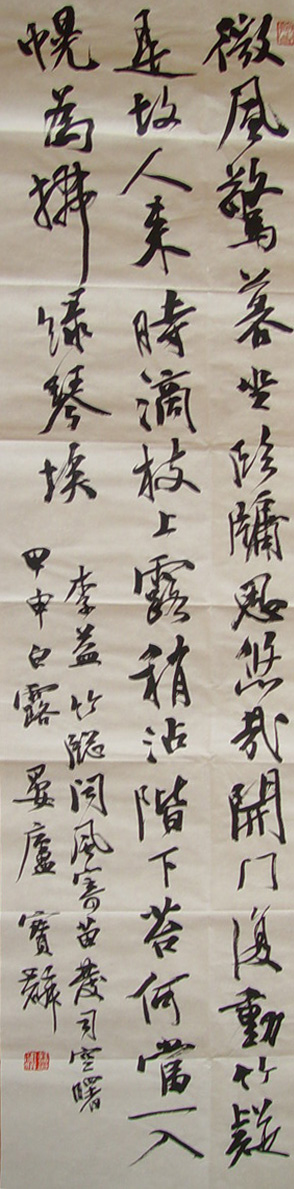 微風驚暮坐臨牖思悠哉開门復動竹疑
是故人来時滴枝上露稍沾階下苔何當一入
幌為拂緑琴埃
李益竹窓闻風寄苗發司空曙
甲申白露晏廬寶麟